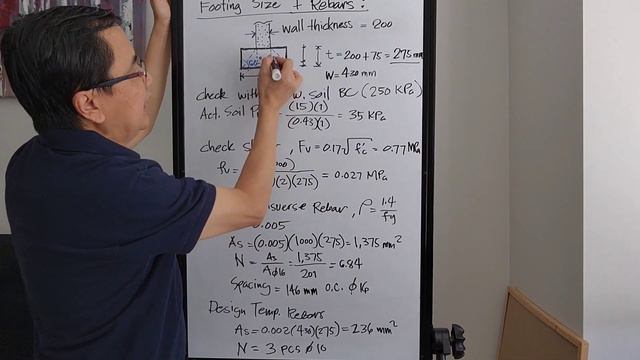 Footing Size + Rebars:
wall thickness = 200
t = 200+75 = 275 mm
W = 430 mm
check with soil BC (250 KPa)
Act. Soil (15)(1) / (0.43)(1) = 35 KPa
check , Fv = 0.17√f'c = 0.77 MPa
fv = (2)(275) = 0.027 MPa
Rebar, ρ = 1.4/fy
0.005
As = (0.005)(1000)(275) = 1,375 mm²
N = As/Aϕ16 = 1,375/201 = 6.84
Spacing = 146 mm O.C.
Design Temp. Rebars
As = 0.002(430)(275) = 236 mm²
N = 3 pcs ϕ10